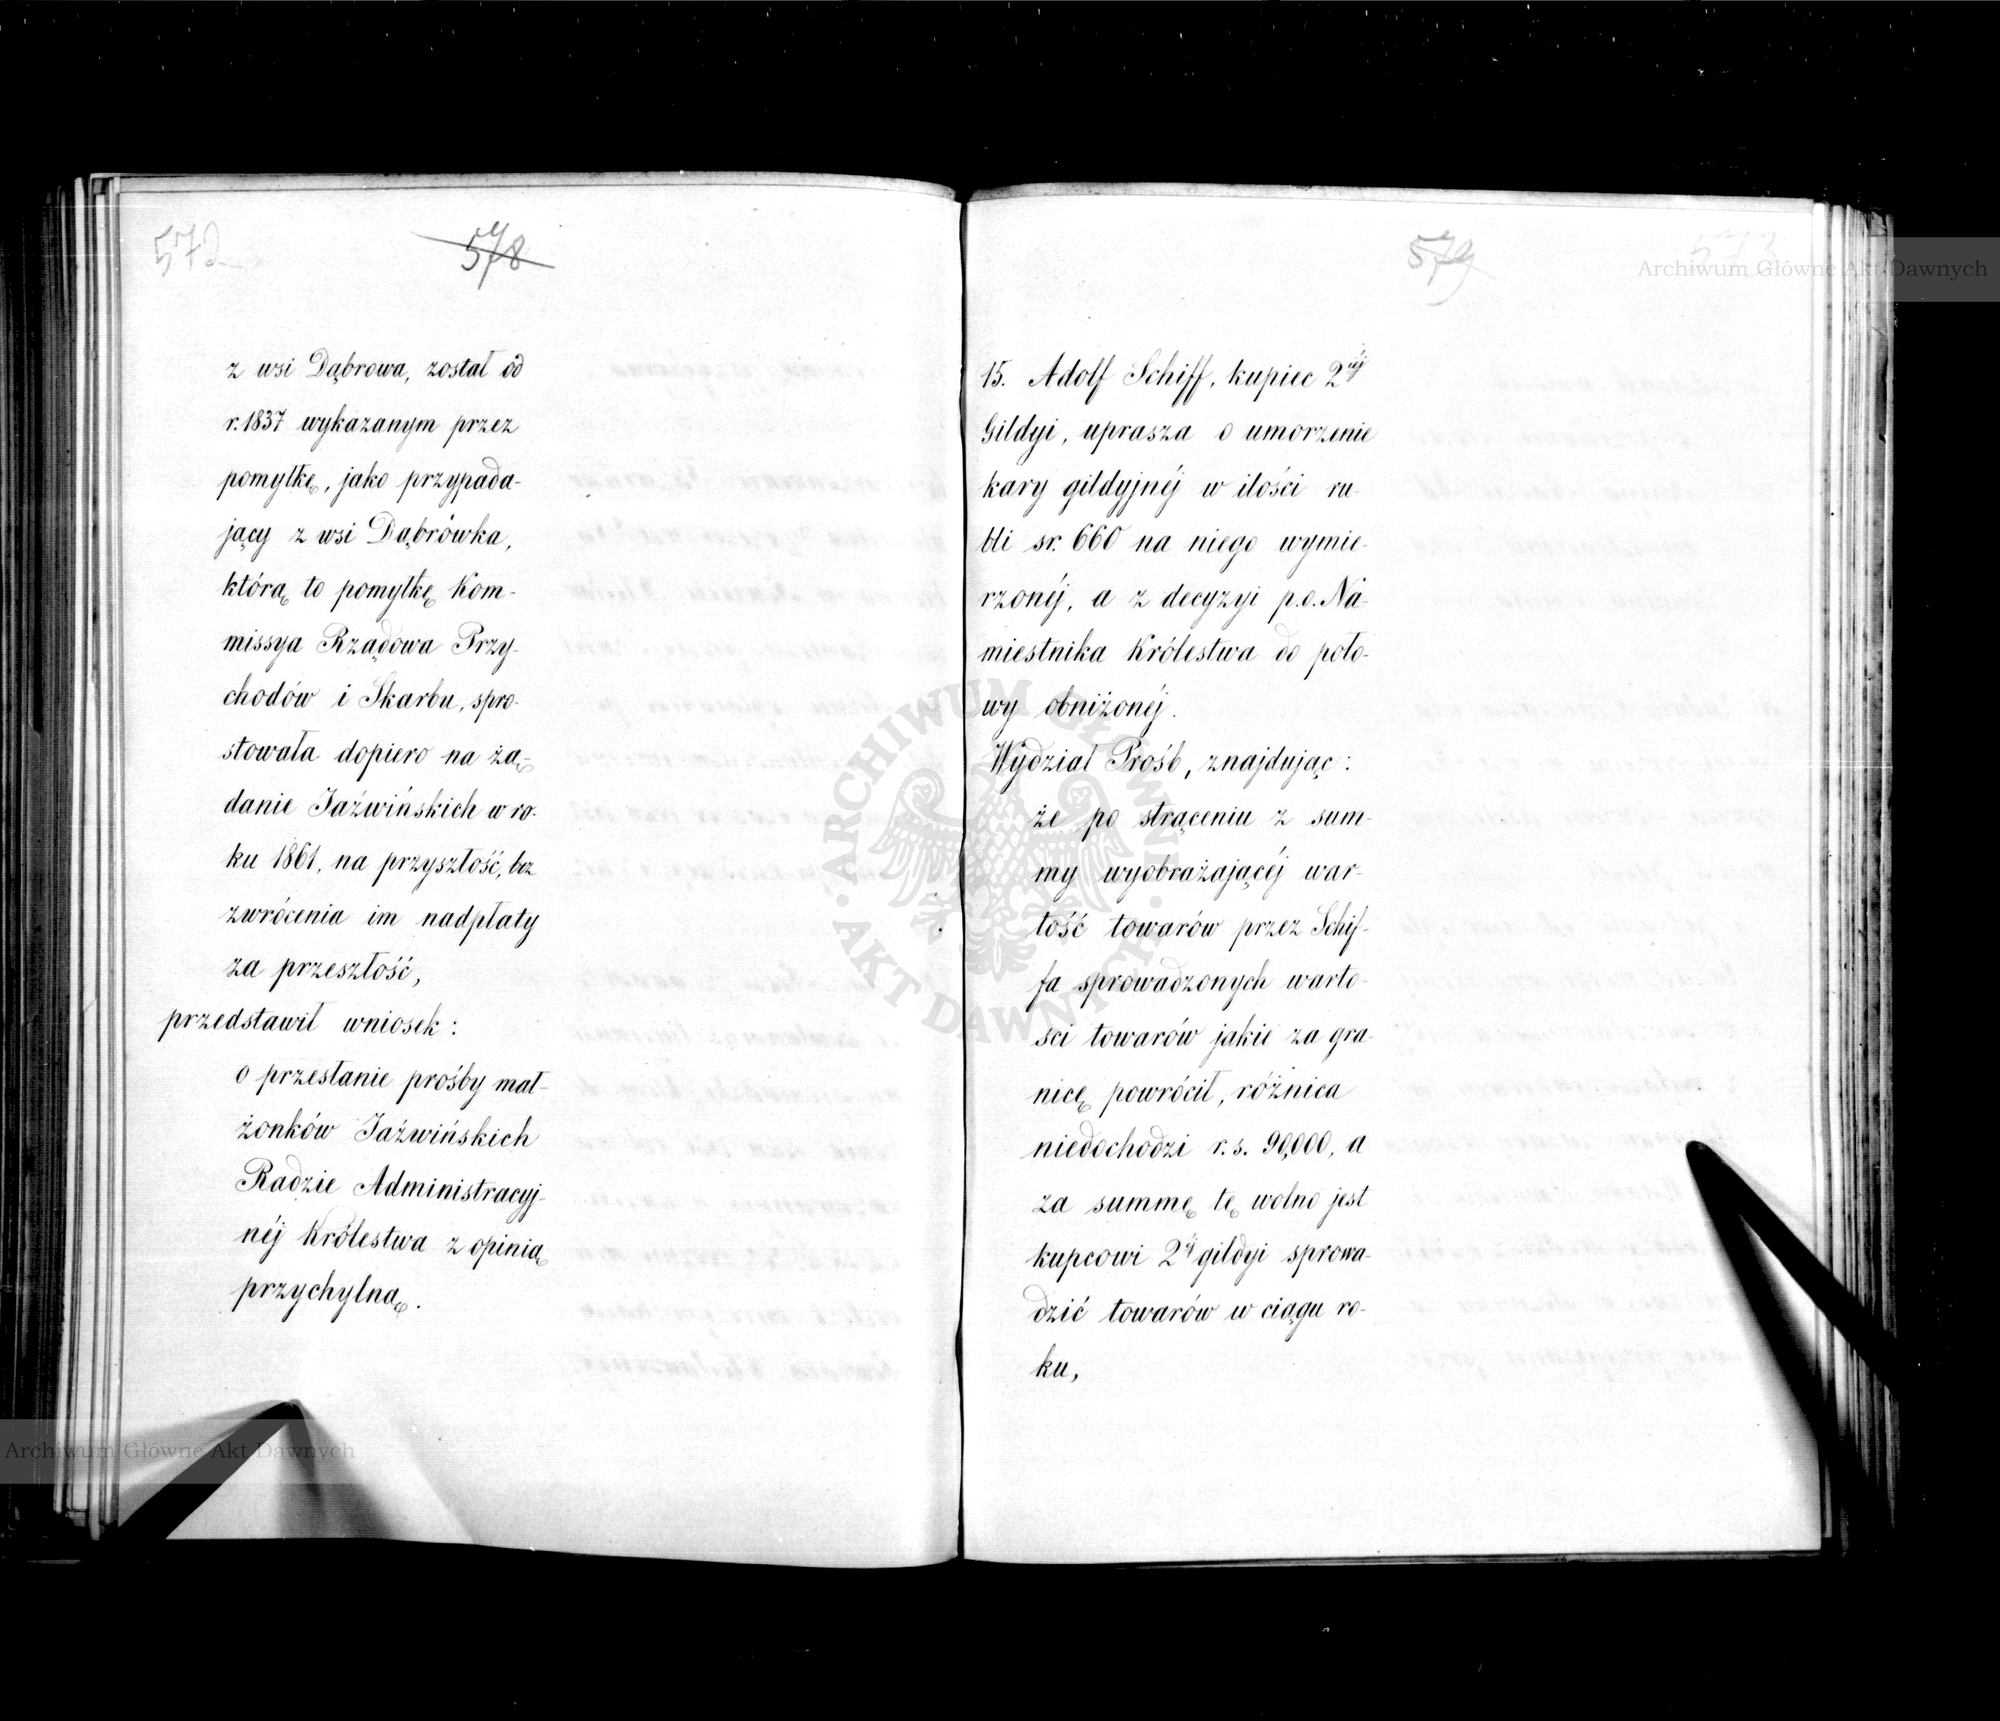 572
578
z wsi Dąbrowa, został od
r. 1837 wykazanym przez
pomyłkę, jako przypada-
jący z wsi Dąbrówka,
którą to pomyłkę Kom-
missya Rządowa Przy-
chodów i Skarbu, spro-
stowała dopiero na żą-
danie Jaźwińskich w ro-
ku 1861, na przyszłość, bez
zwrócenia im nadpłaty
za przeszłość,
przedstawił wniosek:
o przesłanie prośby mał-
żonków Jaźwińskich
Radzie Administracyj-
néj Królestwa z opinią
przychylną.
579
573
15. Adolf Schiff, kupiec 2éj
Gildyi, uprasza o umorzenie
kary gildyjnéj w ilości ru-
bli sr. 660 na niego wymie-
rzonéj, a z decyzyi p.o. Na-
miestnika Królestwa do poło-
wy obniżonéj.
Wydział Próśb, znajdując:
że po strąceniu z sum-
my wyobrażającéj war-
tość towarów przez Schif-
fa sprowadzonych warto-
sci towarów jakie za gra-
nicę powrócił, różnica
niedochodzi r. s. 90,000, a
za summę tę wolno jest
kupcowi 2éj gildyi sprowa-
dzić towarów w ciągu ro-
ku,
Archiwum Główne Akt Dawnych
Archiwum Główne Akt Dawnych
ARCHIWUM GŁÓWNE AKT DAWNYCH